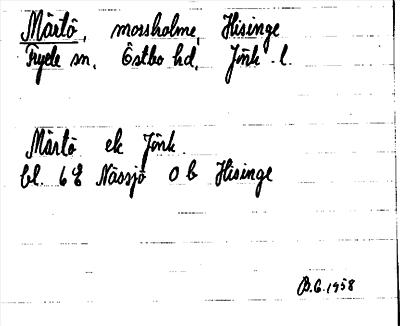 Mårtö, mossholme, Hisinge
Fryele sn. Östbo hd. Jönk. l.
Mårtö ek Jönk.
bl. 6E Nässjö 0 b Hisinge
B.G. 1958